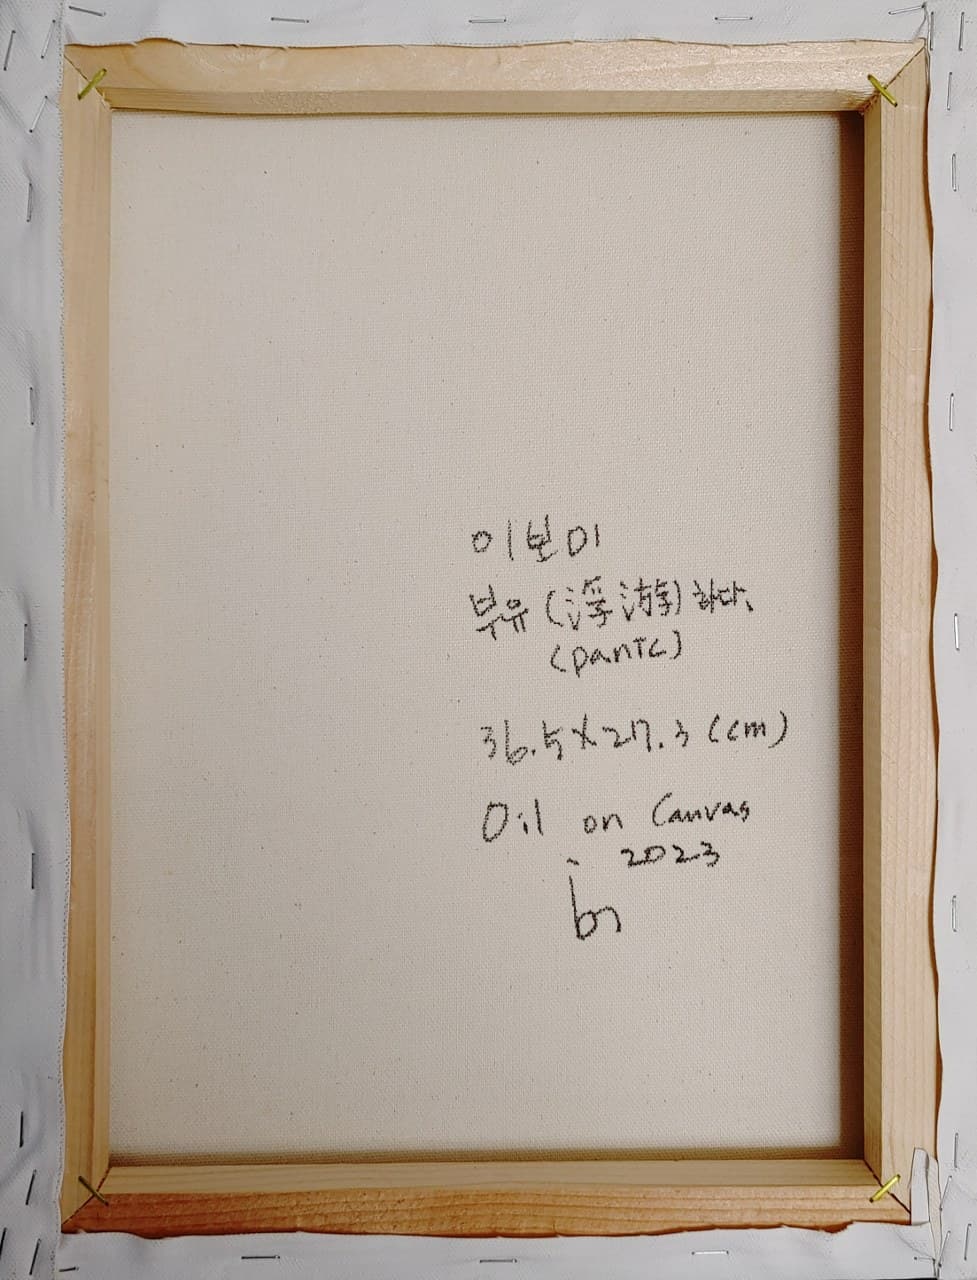 이보미
부유(浮游)하다.
(panic)
36.5x27.3(cm)
Oil on Canvas
2023